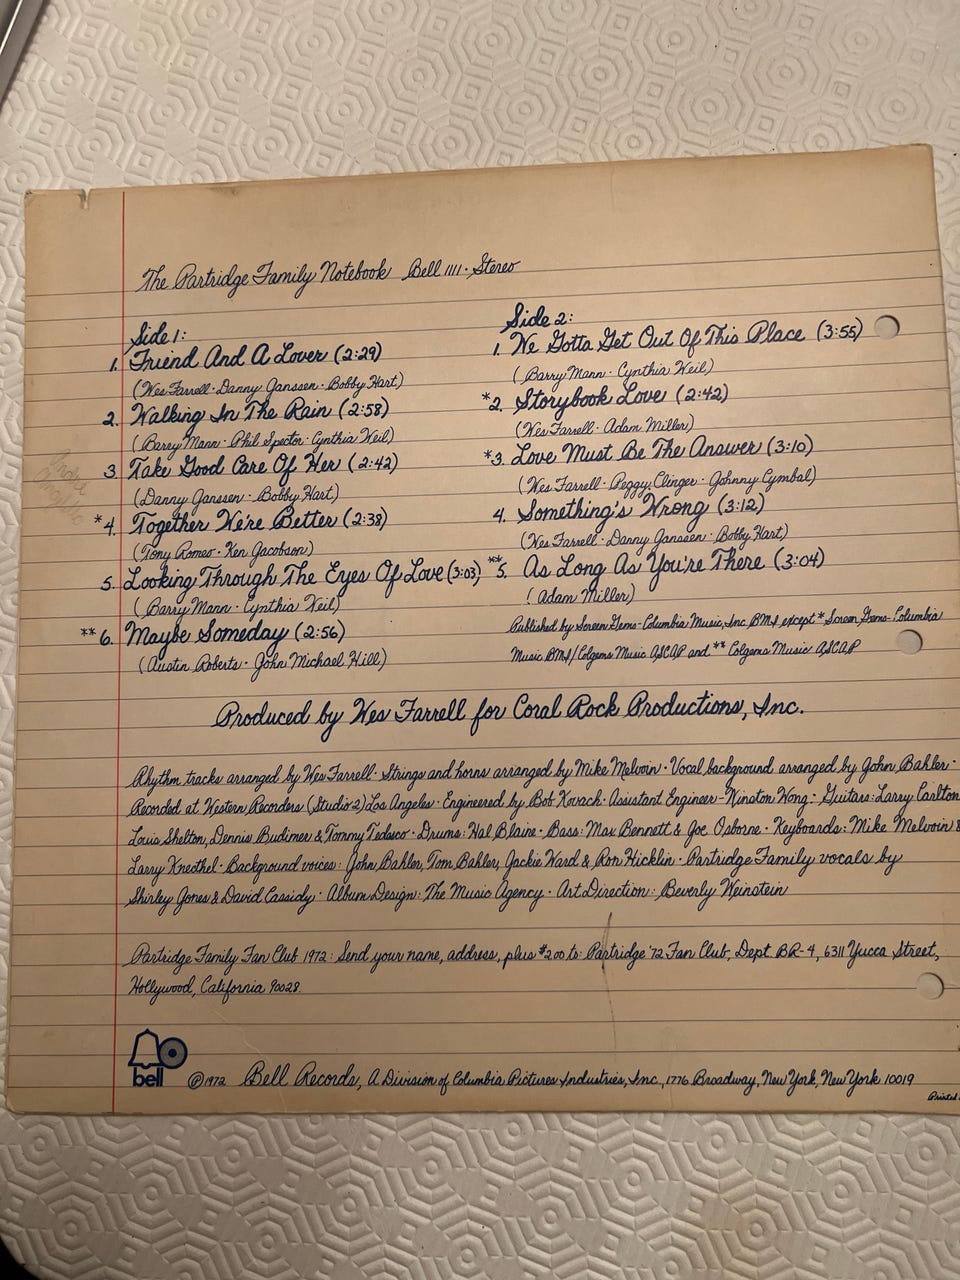 The Partridge Family Notebook Bell 1111 · Stereo
Side 1:
1. Friend And A Lover (2:29)
(Wes Farrell · Danny Janssen · Bobby Hart)
2. Walking In The Rain (2:58)
(Barry Mann · Phil Spector · Cynthia Weil)
3 Take Good Care Of Her (2:42)
(Danny Janssen · Bobby Hart)
*4. Together We're Better (2:38)
(Tony Romeo · Ken Jacobson)
5. Looking Through The Eyes Of Love (3:03)
(Barry Mann · Cynthia Weil)
**6. Maybe Someday (2:56)
(Austin Roberts · John Michael Hill)
Side 2:
1. We Gotta Get Out Of This Place (3:55)
(Barry Mann · Cynthia Weil)
*2. Storybook Love (2:42)
(Wes Farrell · Adam Miller)
*3. Love Must Be The Answer (3:10)
(Wes Farrell · Peggy Clinger · Johnny Cymbal)
4. Something's Wrong (3:12)
(Wes Farrell · Danny Janssen · Bobby Hart)
**5. As Long As You're There (3:04)
(Adam Miller)
Published by Screen Gems-Columbia Music, Inc. BMI except * Screen Gems-Columbia
Music BMI/Colgems Music ASCAP and ** Colgems Music ASCAP
Produced by Wes Farrell for Coral Rock Productions, Inc.
Rhythm tracks arranged by Wes Farrell · Strings and horns arranged by Mike Melvoin · Vocal background arranged by John Bahler ·
Recorded at Western Recorders (Studio 2) Los Angeles · Engineered by Bob Kovach · Assistant Engineer - Winston Wong · Guitars: Larry Carlton
Louis Shelton, Dennis Budimer & Tommy Tedesco · Drums: Hal Blaine · Bass: Max Bennett & Joe Osborne · Keyboards: Mike Melvoin &
Larry Knechtel · Background voices: John Bahler, Tom Bahler, Jackie Ward & Ron Hicklin · Partridge Family vocals by
Shirley Jones & David Cassidy · Album Design: The Music Agency · Art Direction: Beverly Weinstein
Partridge Family Fan Club 1972: Send your name, address, plus $2.00 to: Partridge '72 Fan Club, Dept. BR-4, 6311 Yucca Street,
Hollywood, California 90028.
bell
℗ 1972 Bell Records, A Division of Columbia Pictures Industries, Inc., 1776 Broadway, New York, New York 10019
Printed